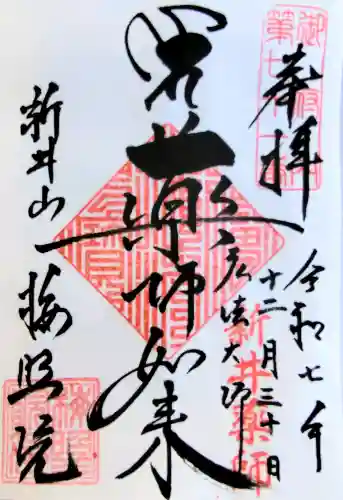 奉拝
令和七年
十二月三十日
新井薬師
弘法大師
薬師如来
新井山
梅照院